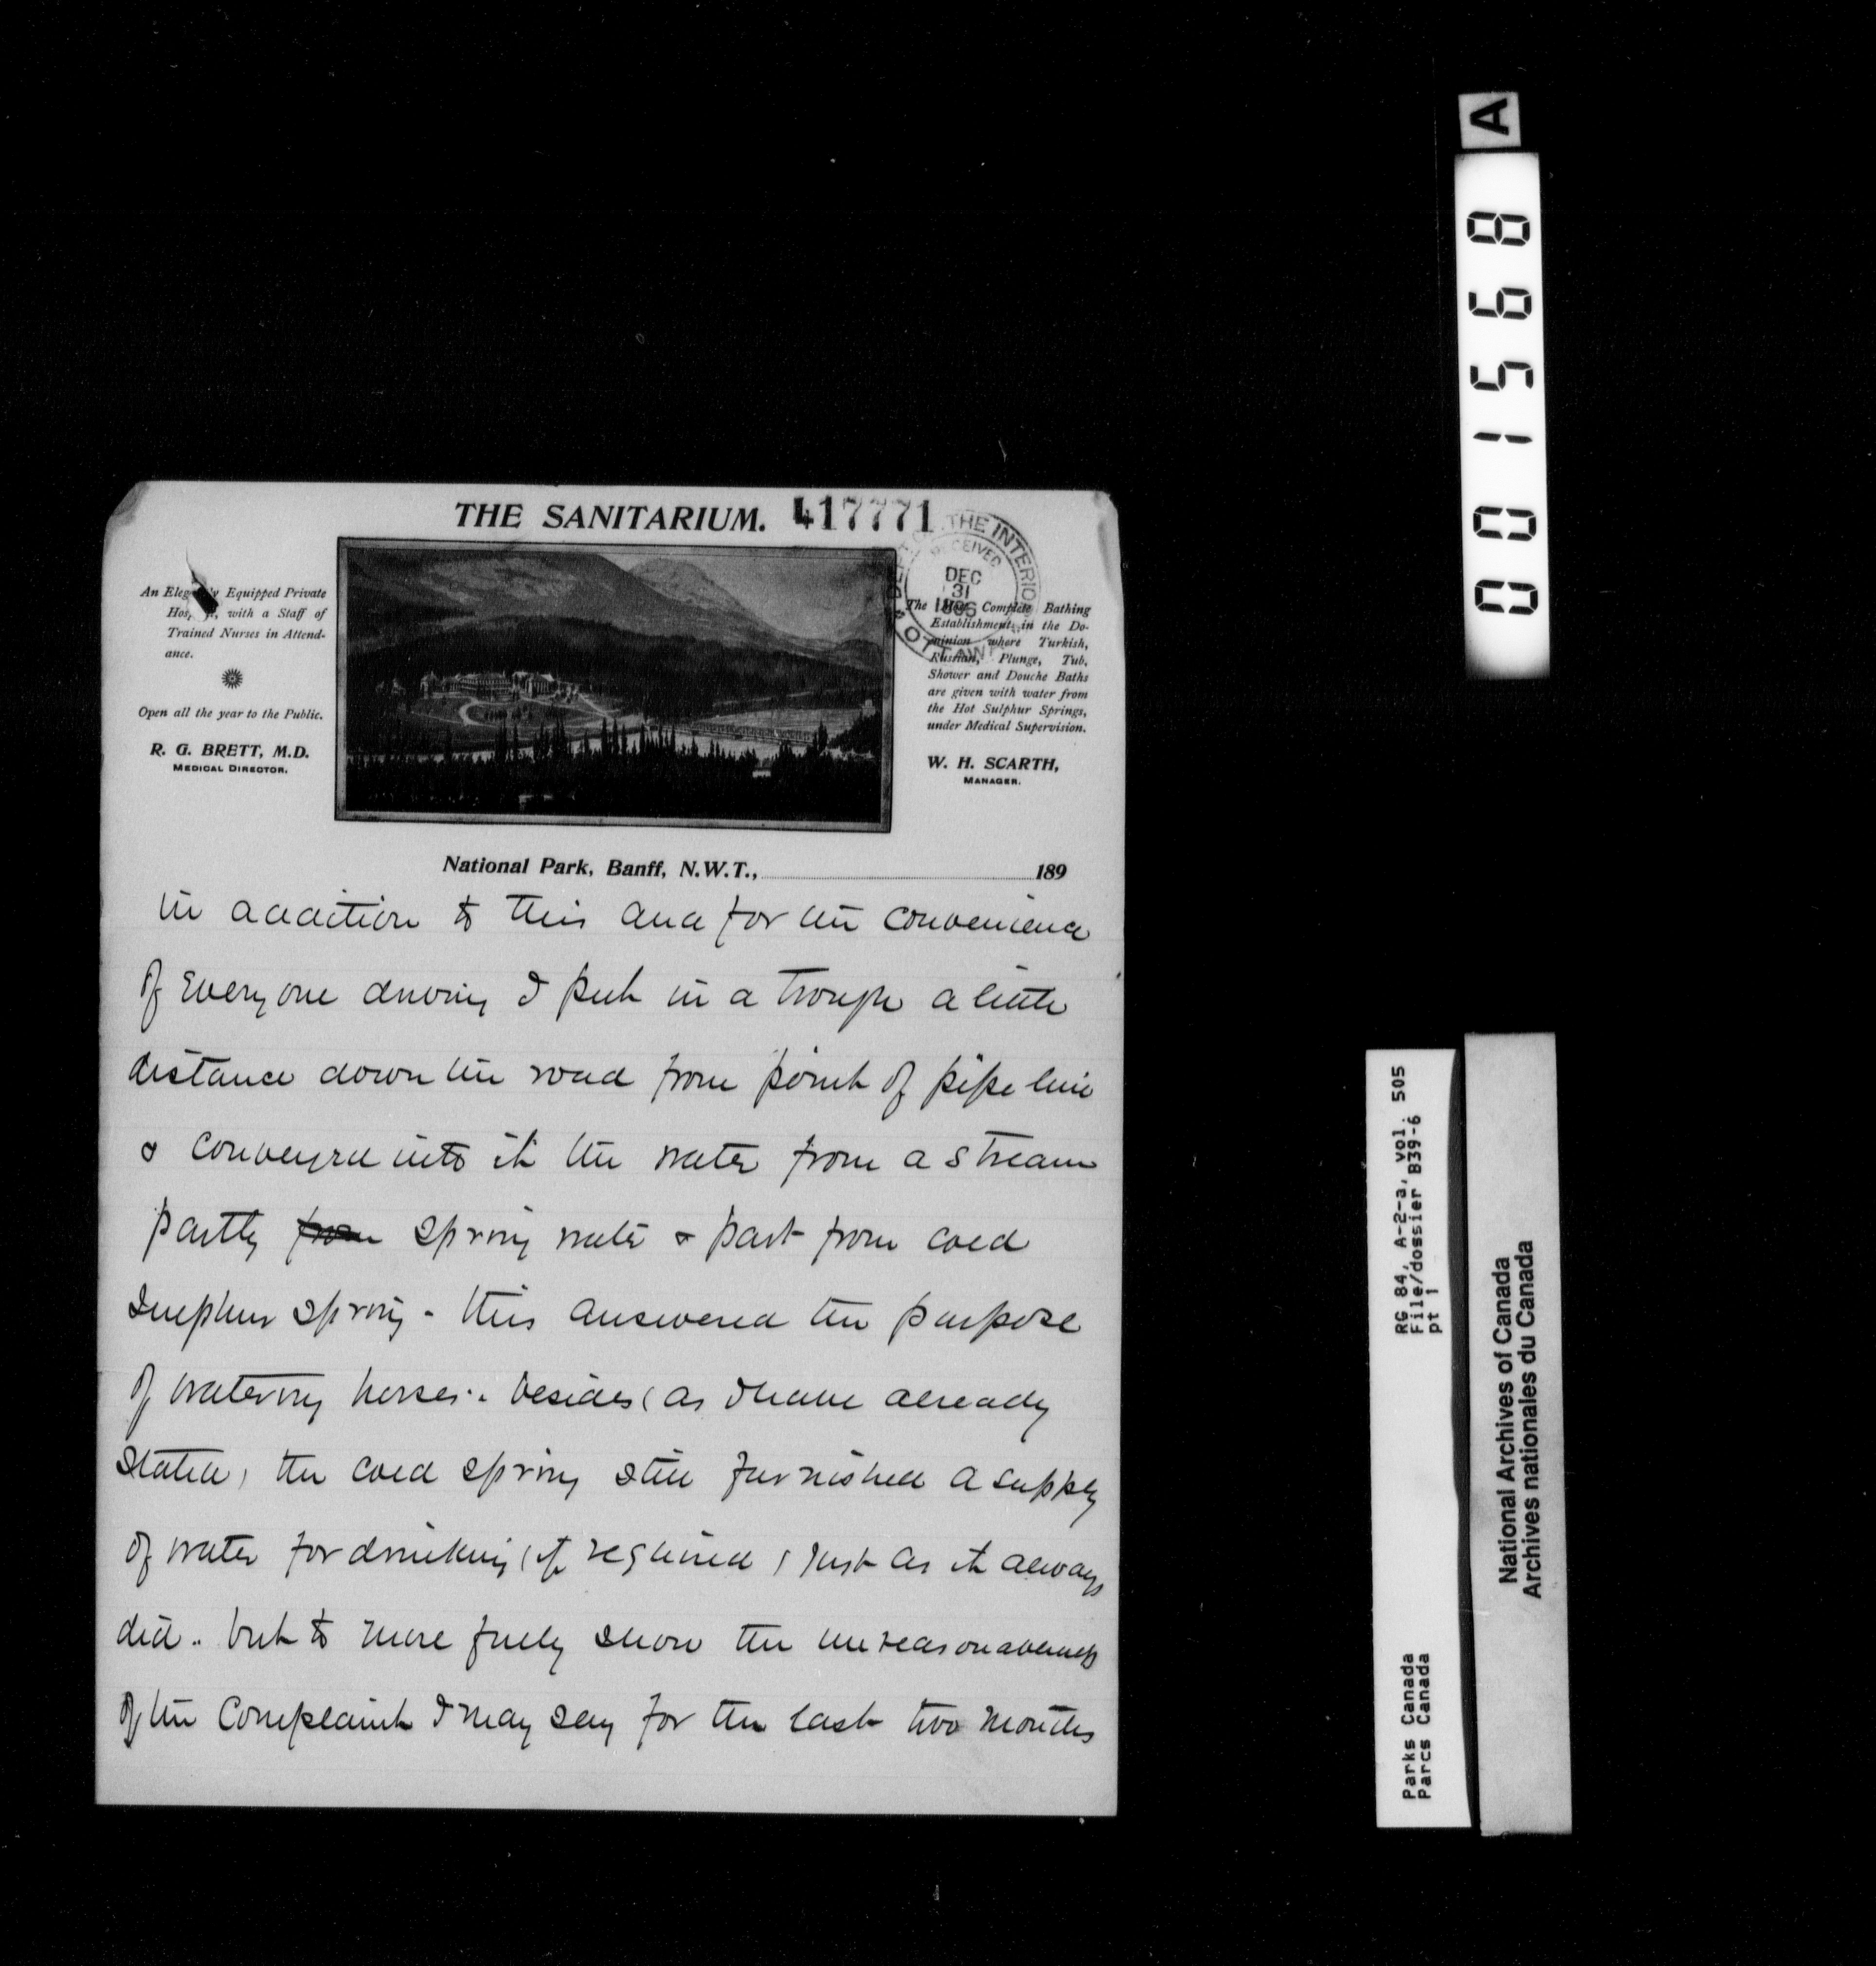 THE SANITARIUM. 417771
THE INTERIOR
RECEIVED
DEC
31
1896
OTTAWA
An Elegantly Equipped Private
Hospital, with a Staff of
Trained Nurses in Attend-
ance.
Open all the year to the Public.
R. G. BRETT, M.D.
MEDICAL DIRECTOR.
The Most Complete Bathing
Establishment in the Do-
minion where Turkish,
Russian, Plunge, Tub,
Shower and Douche Baths
are given with water from
the Hot Sulphur Springs,
under Medical Supervision.
W. H. SCARTH,
MANAGER.
National Park, Banff, N.W.T., 189
in addition to this and for the convenience
of Everyone driving I put in a trough a little
distance down the road from point of pipe line
& conveyed into it the water from a stream
partly from spring water & part from cold
Sulphur spring - this answered the purpose
of watering horses - besides (as I have already
stated) the cold spring still furnished a supply
of water for drinking (if required) just as it always
did - but to more fully show the unreasonableness
of the Complaint I may say for the last two months
A
001568
RG 84, A-2-a, vol. 505
File/dossier B39-6
pt 1
Parks Canada
Parcs Canada
National Archives of Canada
Archives nationales du Canada